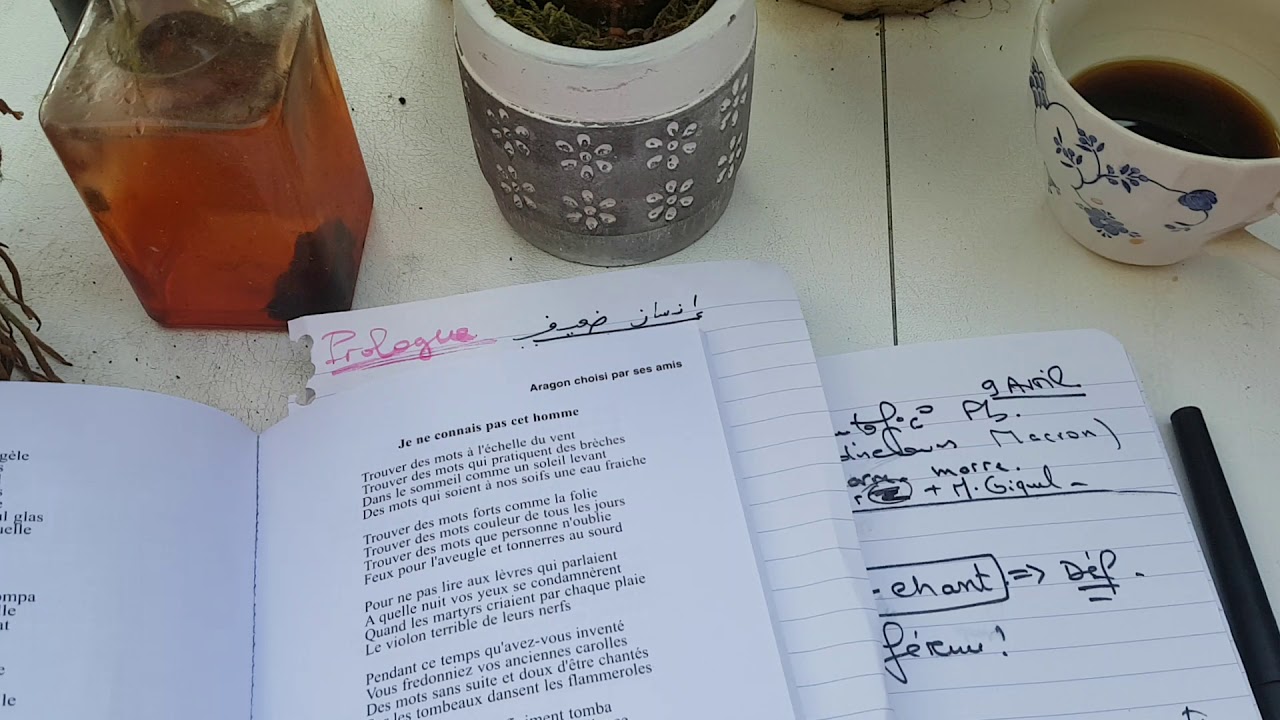 gèle
s
glas
uelle
ompa
lle
ut
e
le
Prologue إنسان ضعيف
Aragon choisi par ses amis
Je ne connais pas cet homme
Trouver des mots à l'échelle du vent
Trouver des mots qui pratiquent des brèches
Dans le sommeil comme un soleil levant
Des mots qui soient à nos soifs une eau fraiche
Trouver des mots forts comme la folie
Trouver des mots couleur de tous les jours
Trouver des mots que personne n'oublie
Feux pour l'aveugle et tonnerres au sourd
Pour ne pas lire aux lèvres qui parlaient
A quelle nuit vos yeux se condamnèrent
Quand les martyrs criaient par chaque plaie
Le violon terrible de leurs nerfs
Pendant ce temps qu'avez-vous inventé
Vous fredonniez vos anciennes carolles
Des mots sans suite et doux d'être chantés
les tombeaux dansent les flammeroles
tomba
9 Avril
Pb.
Macron)
morre.
+ M. Giquel -
- chant => Déf.